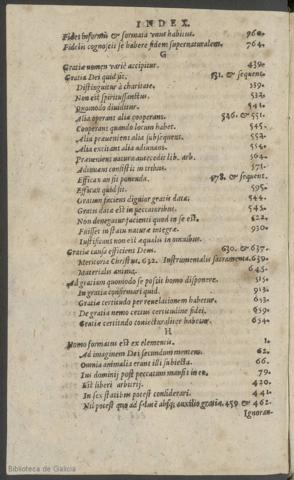 INDEX.
Fides informis & formata vnus habitus. 960.
Fidelis cognoscit se habere fidem supernaturalem. 764.
G
Gratia nomen variè accipitur. 439.
Gratia Dei quid sit. 531. & sequent.
Distinguitur à charitate. 539.
Non est spiritussanctus. 532.
Quomodo diuiditur. 541.
Alia operans alia cooperans. 546. & 551.
Cooperans quando locum habet. 545.
Alia præueniens alia subsequens. 552.
Alia excitans alia adiuuans. 554.
Præueniens natura antecedit lib. arb. 564.
Adiuuans consistit in tribus. 571.
Efficax an sit ponenda. 578. & sequent.
Efficax quid sit. 595.
Gratum faciens dignior gratis data. 544.
Gratis data est in peccatoribus. 545.
Non denegatur facienti quod in se est. 622.
Fuisset in statu naturæ integræ. 930.
Iustificans non est æqualis in omnibus.
Gratiæ causa efficiens Deus. 630. & 637.
Meritoria Christus, 632. Instrumentalis sacramenta. 639.
Materialis anima. 645.
Ad gratiam quomodo se possit homo disponere. 515.
In gratia confirmari quid. 913.
Gratiæ certitudo per reuelationem habetur. 653.
De gratia nemo certus certitudine fidei. 659.
Gratiæ certitudo coniecturaliter habetur. 654.
H
Homo formatus est ex elementis. 1.
Ad imaginem Dei secundum mentem. 62.
Omnia animalia erant illi subiecta. 66.
Ius dominij post peccatum mansit in eo. 79.
Est liberi arbitrij. 420.
In sex statibus potest considerari. 441.
Nil potest quod ad salutē absq; auxilio gratiæ. 459. & 462.
Ignoran-
Biblioteca de Galicia